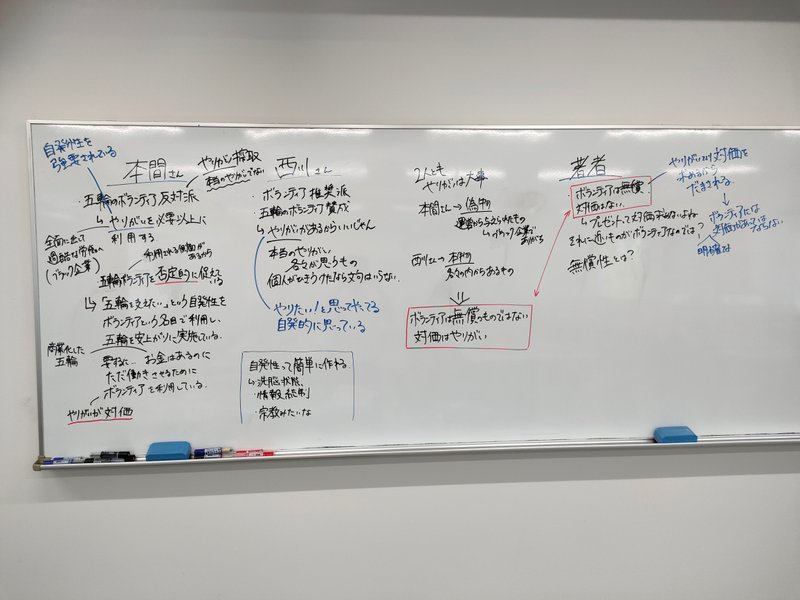 自発性を
強要されている
本間さん
やりがい搾取
本当のやりがいでない
・五輪のボランティア反対派
↳ やりがいを必要以上に
利用する
全面に出て
過酷な労働へ
(ブラック企業)
利用される側面が
あるから
五輪ボランティアを否定的に捉えて
いる
↳「五輪を支えたい」という自発性を
ボランティアという名目で利用し、
五輪を安上がりに実施している。
商業化した
五輪
要するに… お金はあるのに
ただ働きさせるために
ボランティアを利用している。
やりがいが対価
西川さん
ボランティア推奨派
五輪のボランティア賛成
↳ やりがいがあるからいいじゃん
本当のやりがい
各々が思うもの
個人がひきうけたなら文句はいうな。
やりたい!と思ってやってる
自発的に思っている
自発性って簡単に作れる
↳ 洗脳状態
・情報統制
・宗教みたいな
2人とも
やりがいは大事
本間さん → 偽物
運営から与えられたもの
↳ ブラック企業で
ありがち
西川さん → 本物
各々の内からあるもの
⇓
ボランティアは無償のものではない
対価はやりがい
著者
ボランティアは無償
対価はない。
↳ プレゼントって対価求めないよね
それに近いものがボランティアなのでは?
無償性とは?
だまされる
ボランティアだな
明確さは